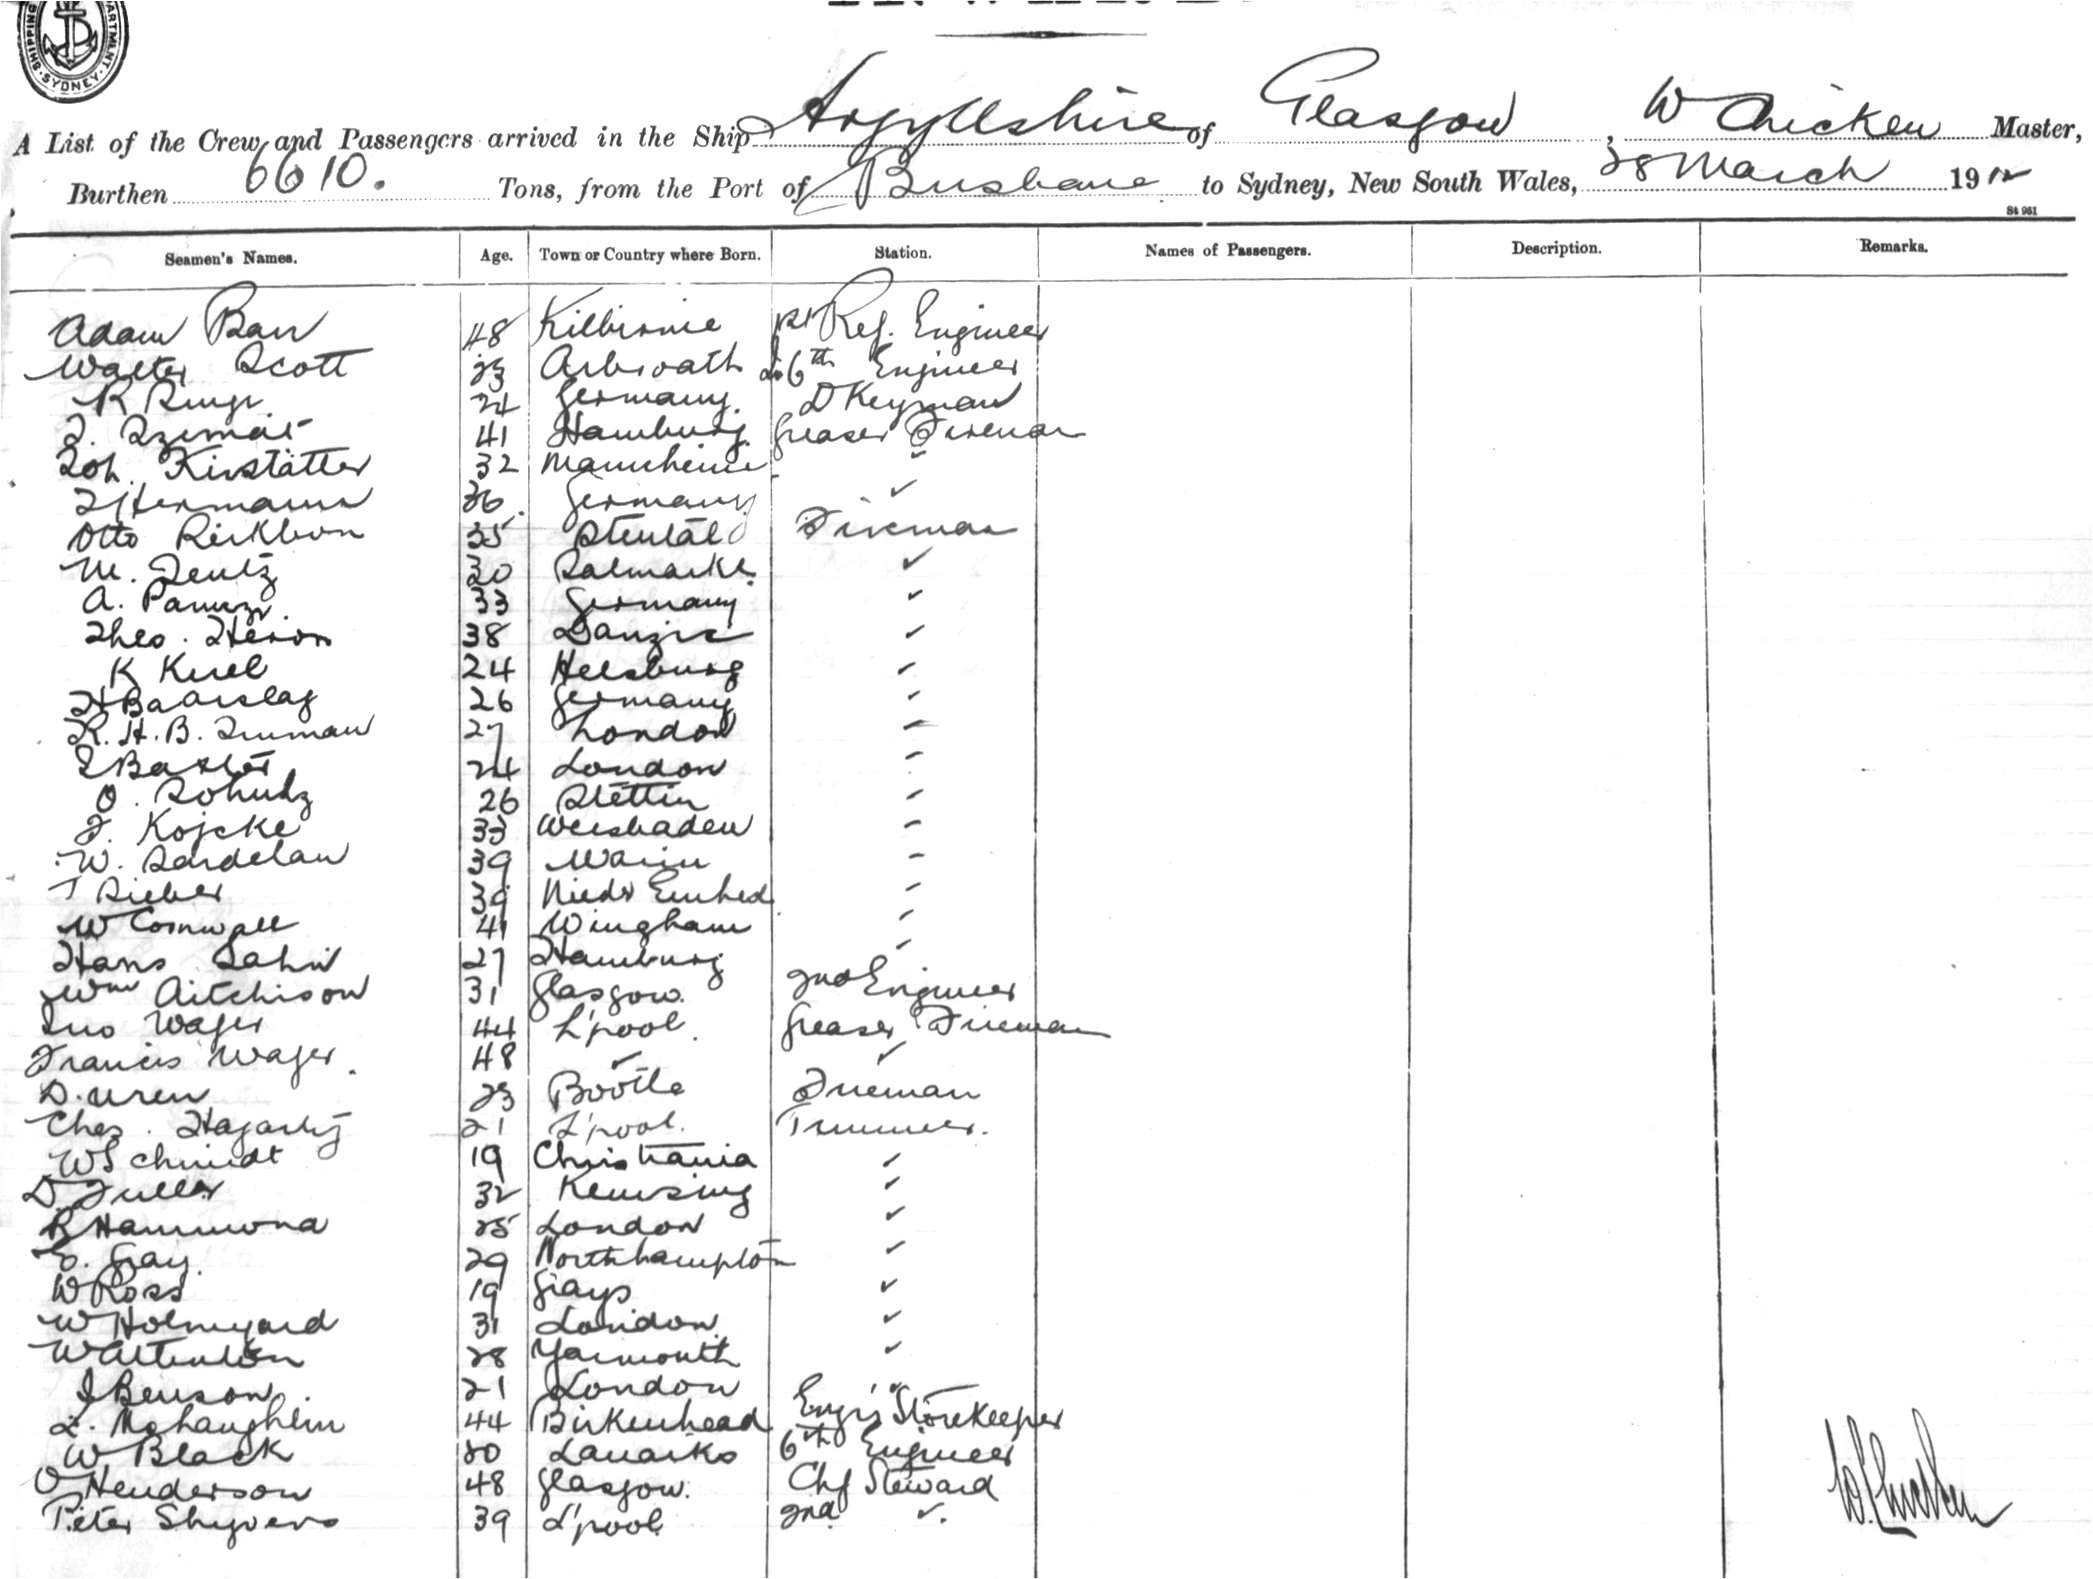 SHIPPING DEPARTMENT. SYDNEY.
A List of the Crew and Passengers arrived in the Ship Argyllshire of Glasgow, W Chicken Master,
Burthen 6610. Tons, from the Port of Brisbane to Sydney, New South Wales, 28 March 1912
St 961
Seamen's Names. Age. Town or Country where Born. Station. Names of Passengers. Description. Remarks.
Adam Barr 48 Kilbirnie 1st Ref. Engineer
Walter Scott 23 Arbroath 6th Engineer
R 24 Germany. D Keyman
41 Hamburg Greaser Fireman
Joh. Kirstätter 32 Mannheim ✓
Hermann 36. Germany ✓
Otto 35 Stendal Fireman
M. 30 ✓
A. 33 Germany ✓
Theo. Heron 38 Danzic ✓
K 24 Helsburg ✓
H Baarslag 26 Germany ✓
R. H. B. 27 London ✓
Baxter 24 London ✓
O. Schultz 26 Stettin ✓
F. Kojcke 33 Weisbaden ✓
W. Sardelau 39 ✓
T Sieber 39 Nieder ✓
W Cornwall 41 Wingham ✓
Hans 27 Hamburg ✓
Wm Aitchison 31 Glasgow. 2nd Engineer
Jno Wager 44 L'pool. Greaser Fireman
Francis Wager. 48 ✓ ✓
D. Uren 23 Bootle Fireman
Chas. Hagarty 21 L'pool. Trimmer.
W Schmidt 19 Christiania ✓
D. Fuller 32 Kemsing ✓
R Hammond 25 London ✓
E. Gray. 29 Northampton ✓
W Ross 19 Grays ✓
W Holmyard 31 London ✓
W Attenborn 28 Yarmouth ✓
J Benson. 21 London ✓
L. McLaughlin 44 Birkenhead Engr's Storekeeper
W. Black 30 Lanarks 6th Engineer
Henderson 48 Glasgow. Chf Steward
Peter Shyvers 39 L'pool 2nd ✓.
W. Chicken